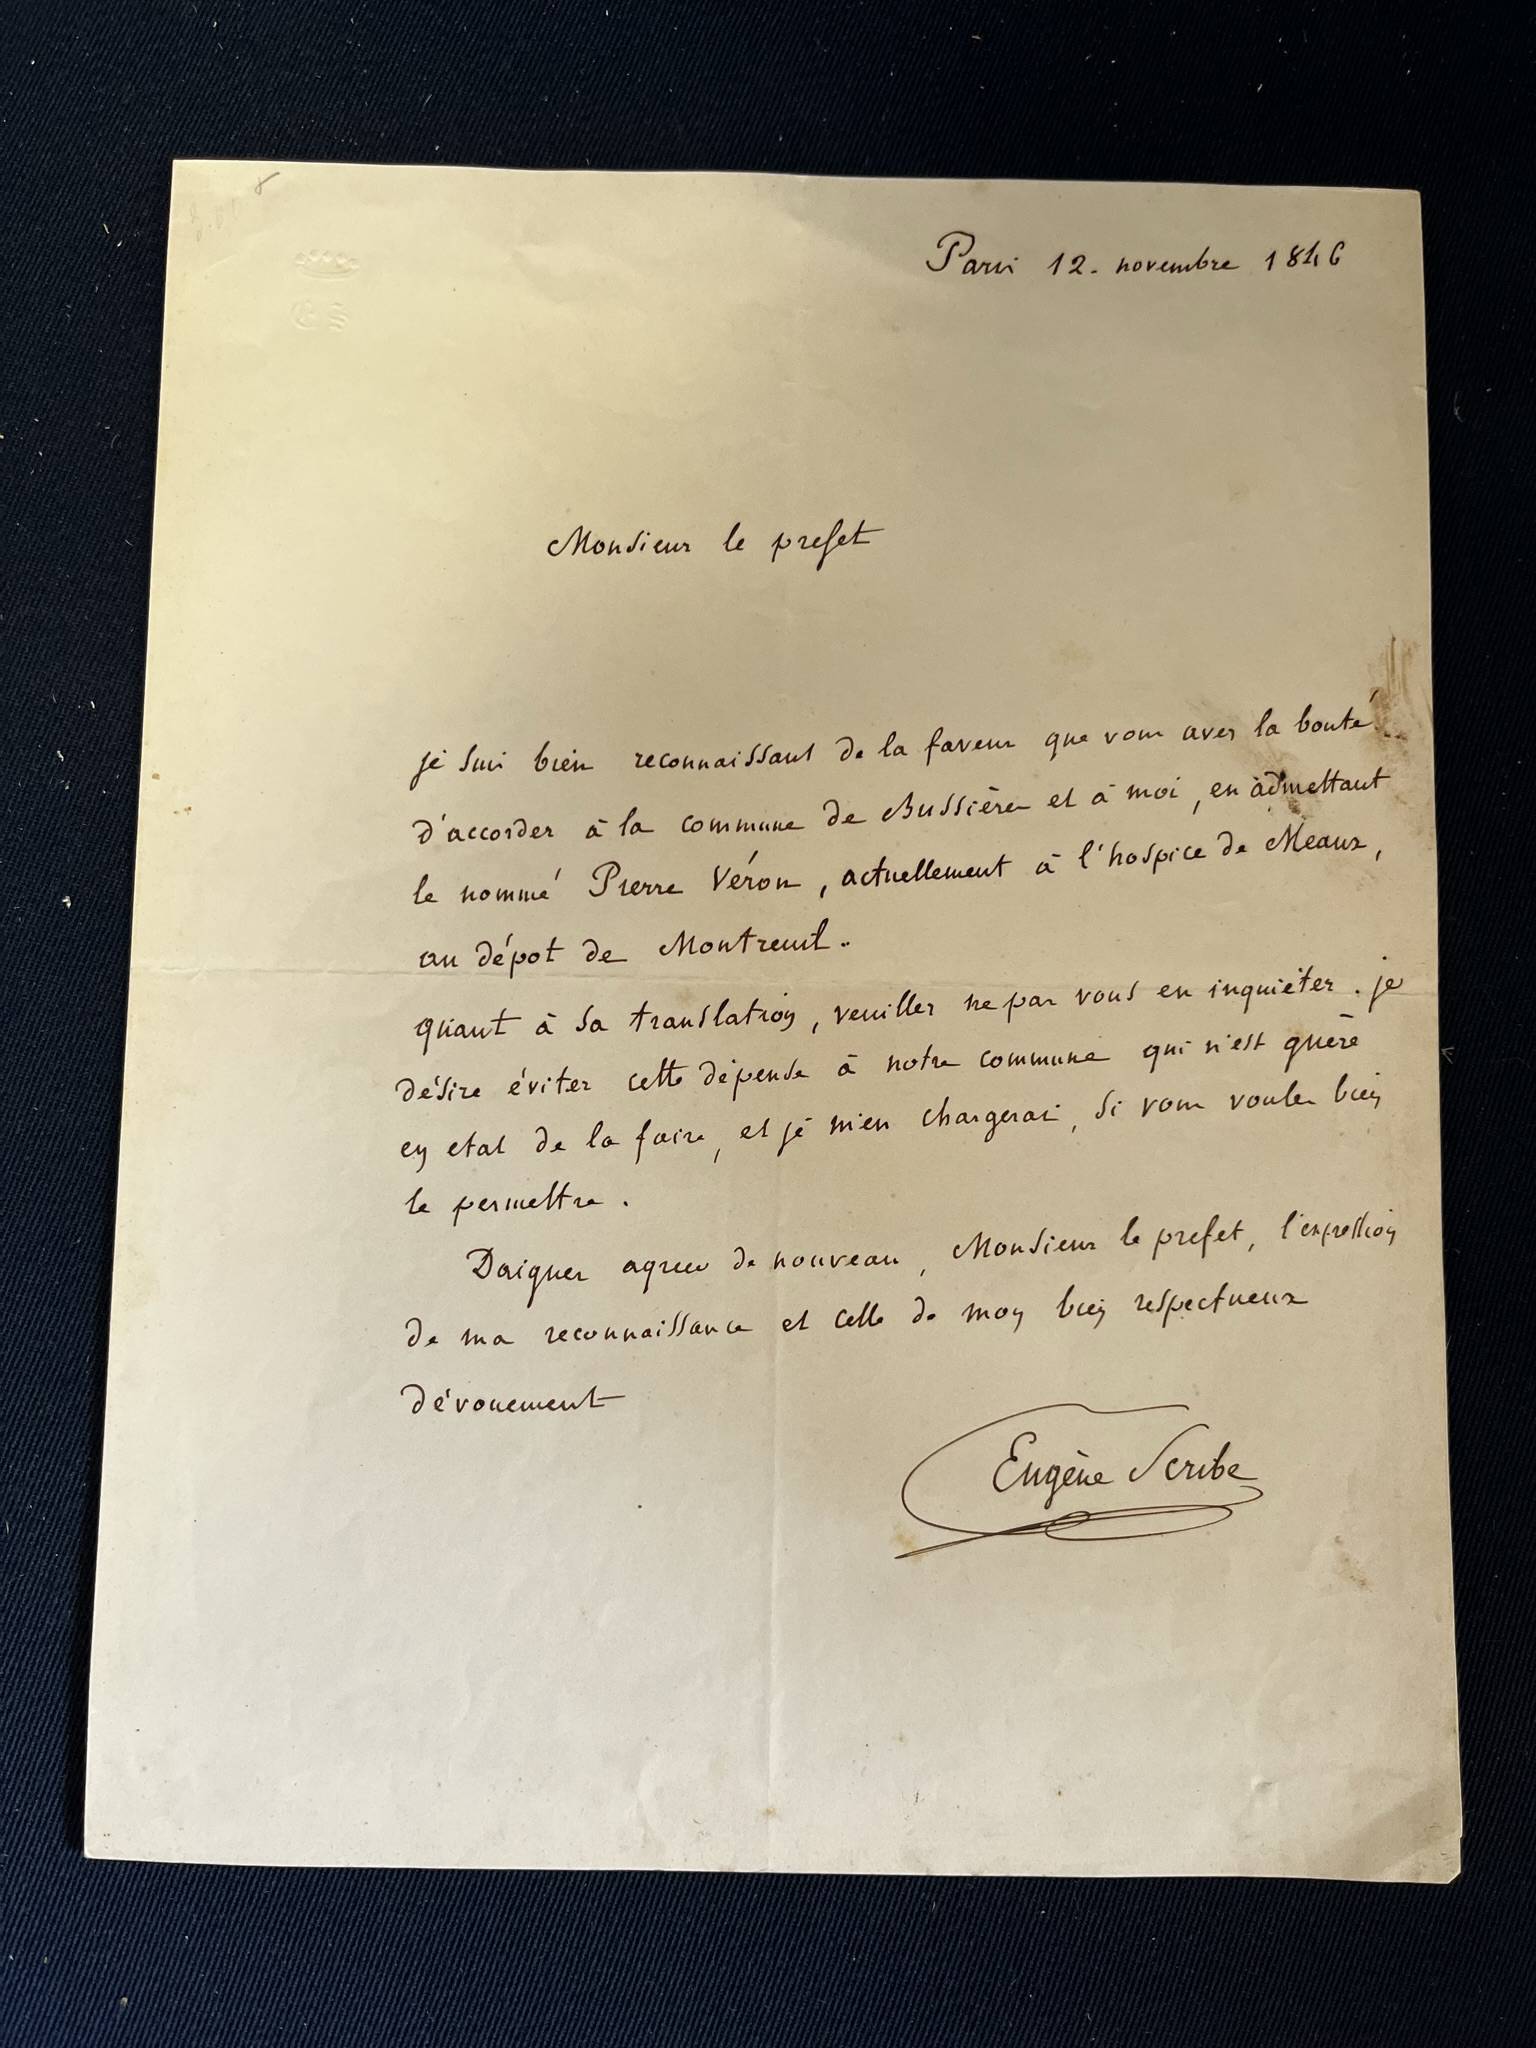 E S
Paris 12. novembre 1846
Monsieur le prefet
je suis bien reconnaissant de la faveur que vous avez la bonté
d'accorder à la commune de Bussières et à moi, en admettant
le nommé Pierre Véron, actuellement à l'hospice de Meaux,
au dépot de Montreuil.
quant à sa translation, veuillez ne pas vous en inquiéter. je
désire éviter cette dépense à notre commune qui n'est guère
en etat de la faire, et je m'en chargerai, si vous voulez bien
le permettre.
Daignez agreer de nouveau, Monsieur le prefet, l'expression
de ma reconnaissance et celle de mon bien respectueux
dévouement
Eugène Scribe